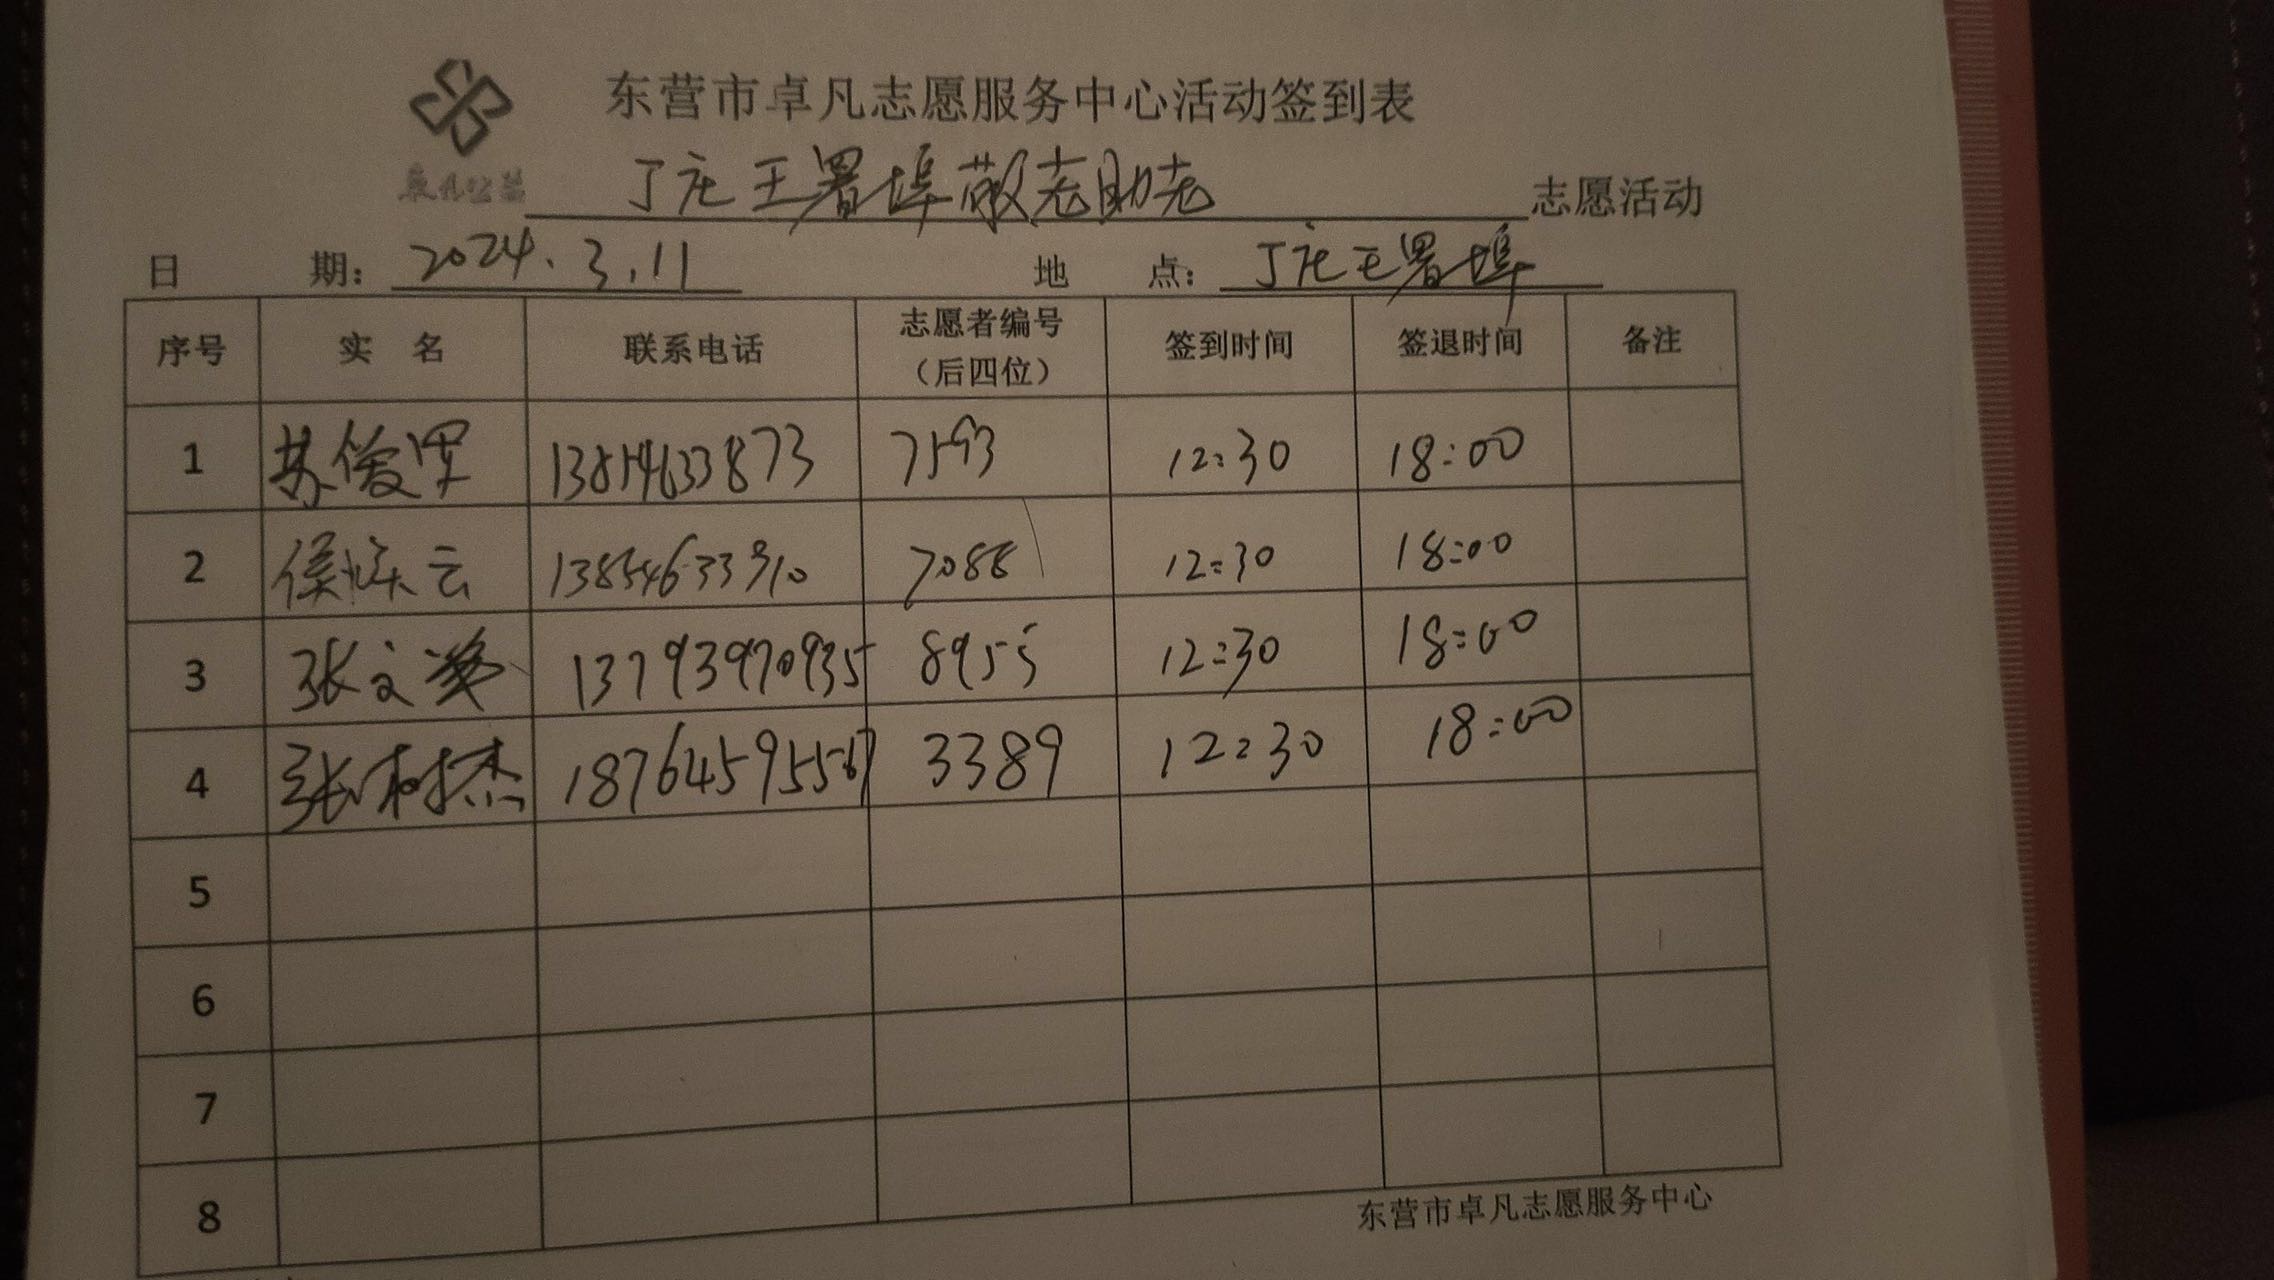 东营市卓凡志愿服务中心活动签到表
卓凡公益
丁庄王署埠敬老助老 志愿活动
日期: 2024.3.11 地点: 丁庄王署埠
序号 实名 联系电话 志愿者编号(后四位) 签到时间 签退时间 备注
1 苏俊军 13814633873 7593 12:30 18:00
2 侯 云 13854633910 7088 12:30 18:00
3 张文 13793970935 8955 12:30 18:00
4 张树杰 3389 12:30 18:00
5
6
7
8
东营市卓凡志愿服务中心